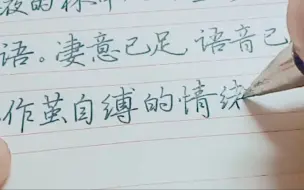 的
语。凄意已足 语音已
作茧自缚的情绪